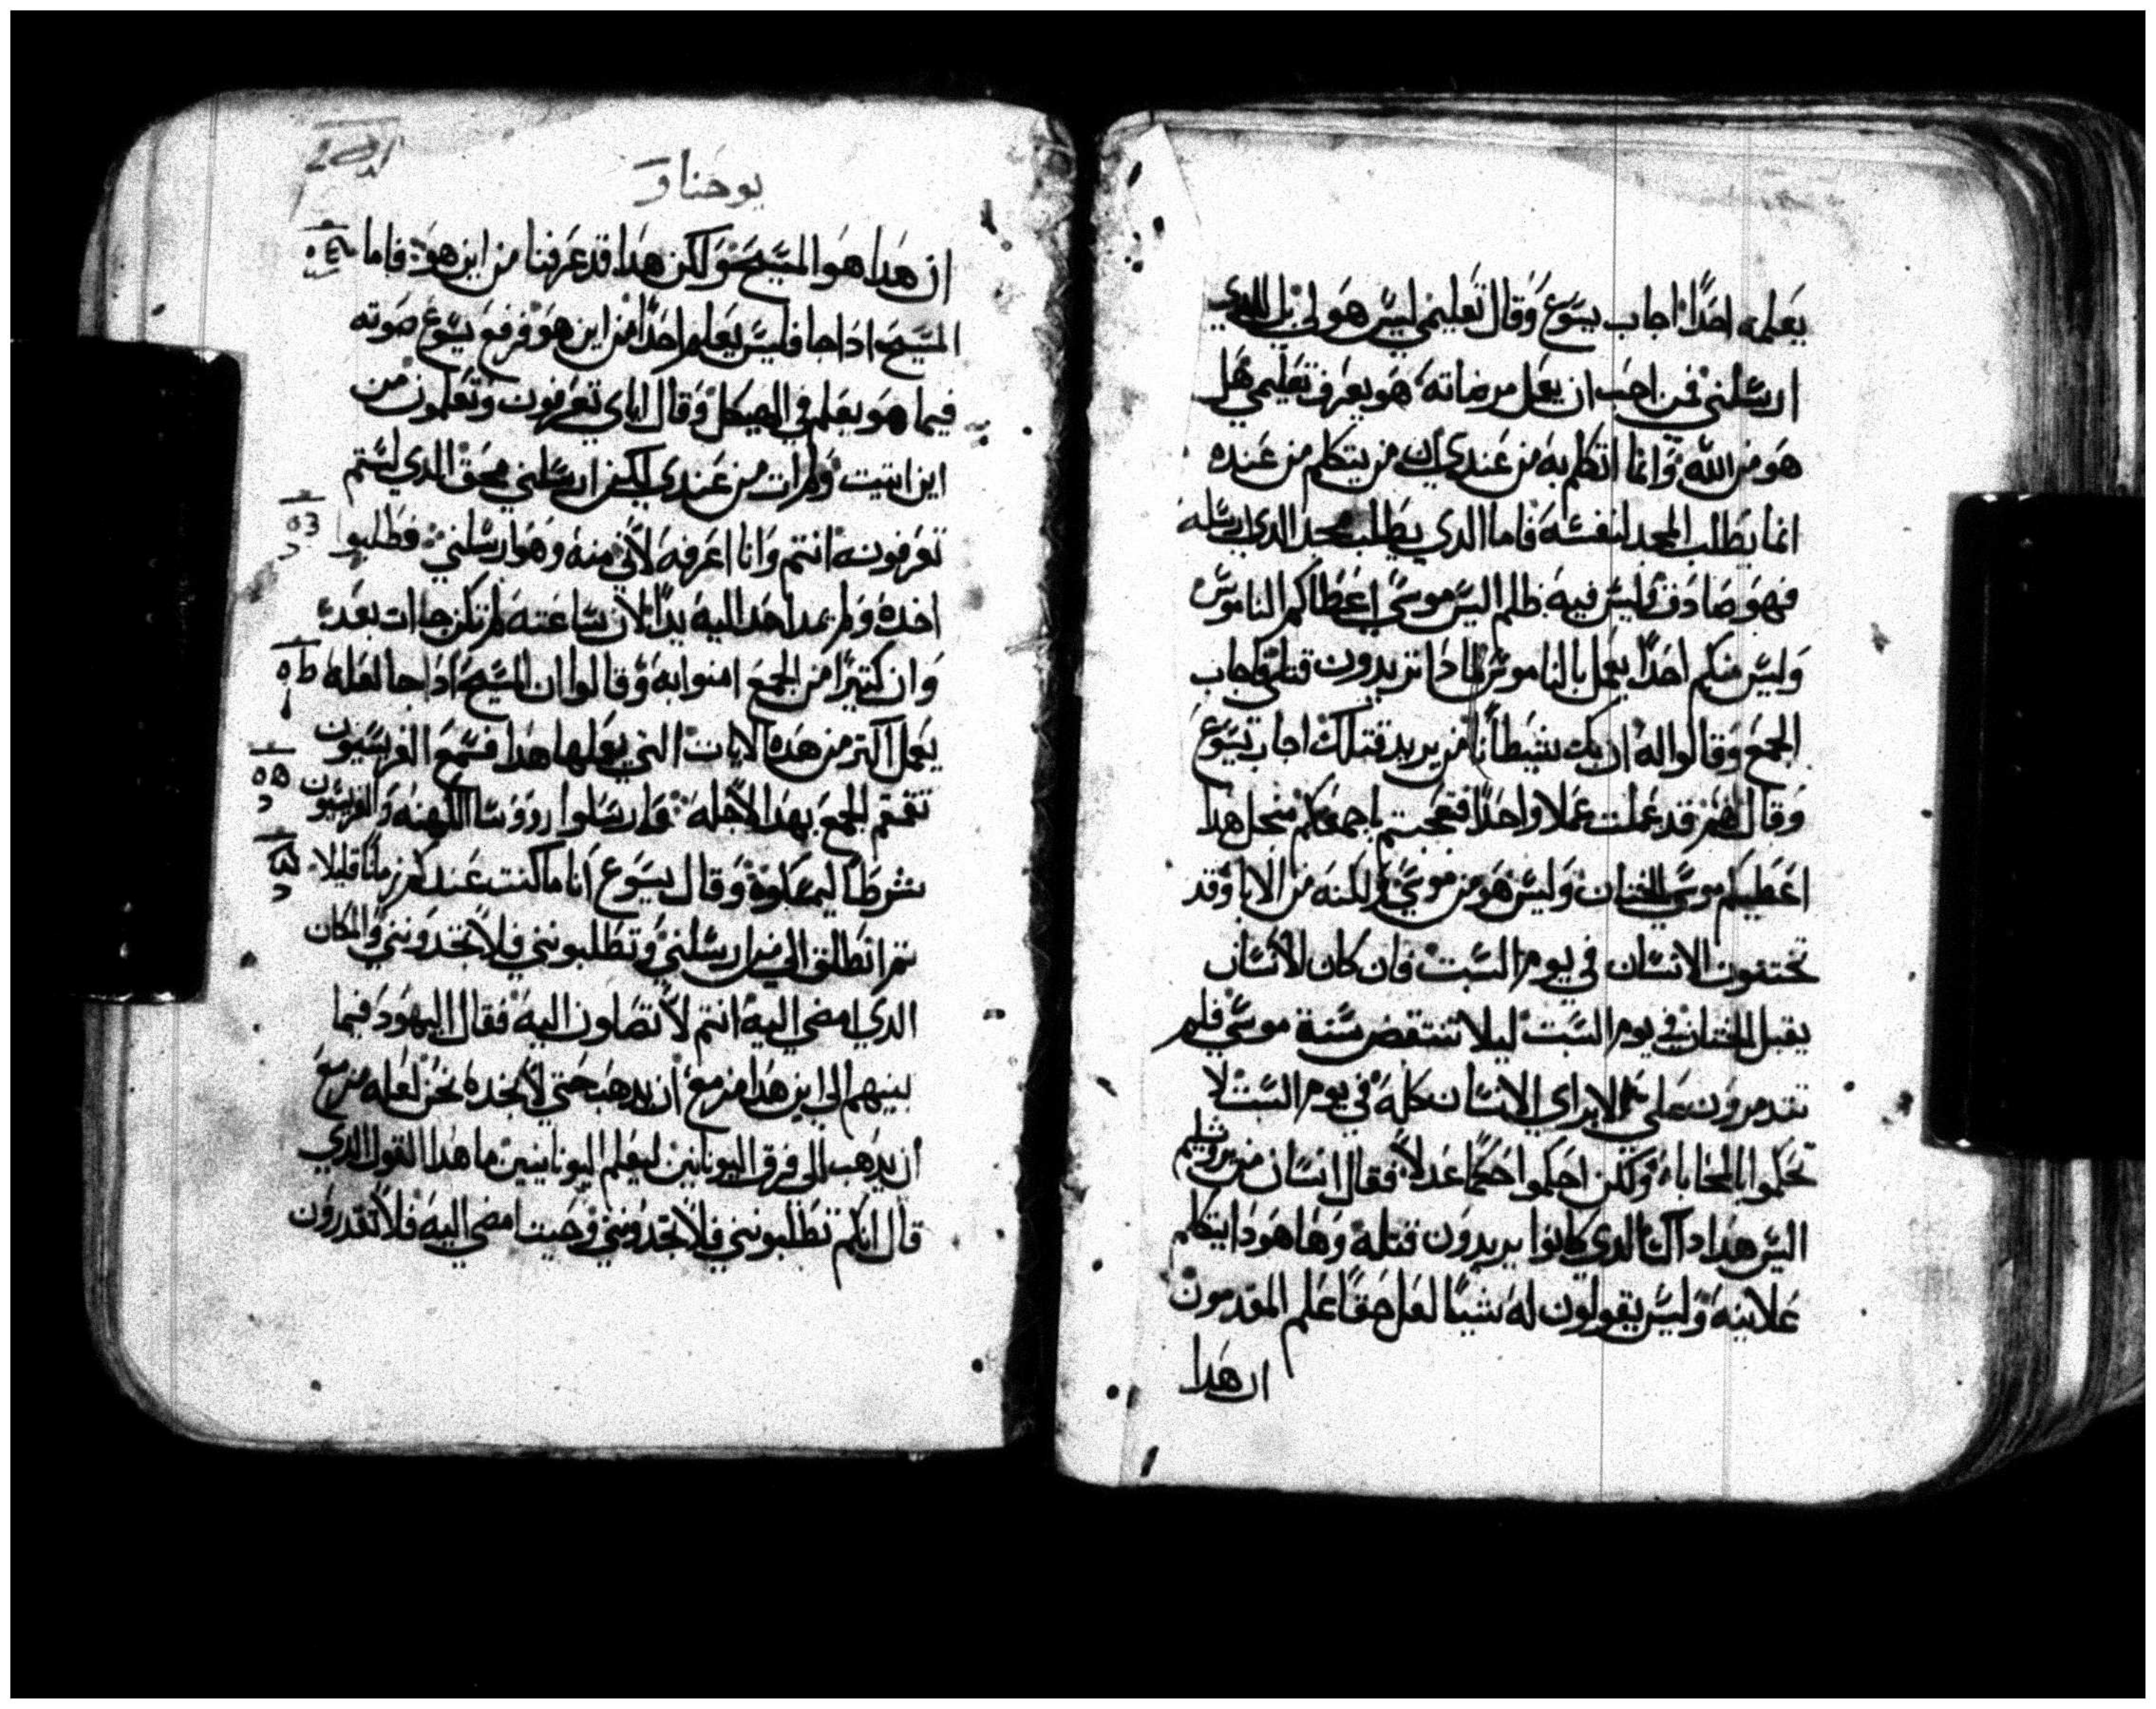 يعلمه احدًا اجاب يسوع وقال تعليمي ليس هو لي بل للدي
ارسلني فمن احب ان يعمل مرضاته هو يعرف تعليمي هل
هو من الله وانما اتكلم به من عندي ان من يتكلم من عنده
انما يطلب المجد لنفسه فاما الدي يطلب مجد الدي ارسله
فهو صادق وليس فيه ظلم اليس موسي اعطاكم الناموس
وليس منكم احدًا يعمل بالناموس لمادا تريدون قتلي فاجاب
الجمع وقالوا له ان بك شيطانًا من يريد قتلك اجاب يسوع
وقال لهم قد عملت عملا واحدًا فتعجبتم باجمعكم منجل هدا
اعطيكم موسي الختان وليس هو من موسي ولكنه من الابا وقد
تختنون الانسان في يوم السبت فان كان الانسان
يقبل الختان في يوم السبت ليلا تنتقض سنة موسي فلم
تتدمرون علي الابراي الانسان كله في يوم السبت لا
تحكموا بالمحاباه ولكن احكموا حكمًا عدلا فقال انسان من يروشليم
اليس هدا داك الدي كانوا يريدون قتله وها هودا يتكلم
علانيه وليس يقولون له شيا لعل حقًا علم المقدمون
ان هدا
يوحنا و
ان هدا هو المسيح ولكن هدا قد عرفنا من اين هو فاما
المسيح ادا جا فليس يعلم احدًا من اين هو فرفع يسوع صوته
فيما هو يعلم في الهيكل وقال اياي تعرفون وتعلمون من
اين اتيت ولم ات من عندي لكن ارسلني محق الدي لستم
تعرفونه انتم وانا اعرفه لأني منه وهو ارسلني فطلبوا
اخده ولم يمد احد اليه يدًا لان ساعته لم تكن جاات بعد
وان كتيرًا من الجمع امنوا به وقالوا ان المسيح ادا جا لعله
يعمل اكتر من هده الايات التي يعملها هدا فسمع الفريسيون
تقمقم الجمع بهدا لاجله وارسلوا رووسا الكهنه والفريسيون
شرطًا ليمسكوه وقال يسوع انا ماكت عندكم زمانًا قليلا
تم انطلق الي من ارسلني وتطلبونني فلا تجدونني والمكان
الدي امضي اليه انتم لا تصلون اليه فقال اليهود فيما
بينهم الي اين هدا مزمع ان يدهب حتي لا نجده نحن لعله مزمع
ان يدهب الي فرق اليونانين ليعلم اليونانيين ما هدا القول الدي
قال انكم تطلبونني فلا تجدونني وحيت امضي اليه فلا تقدرون